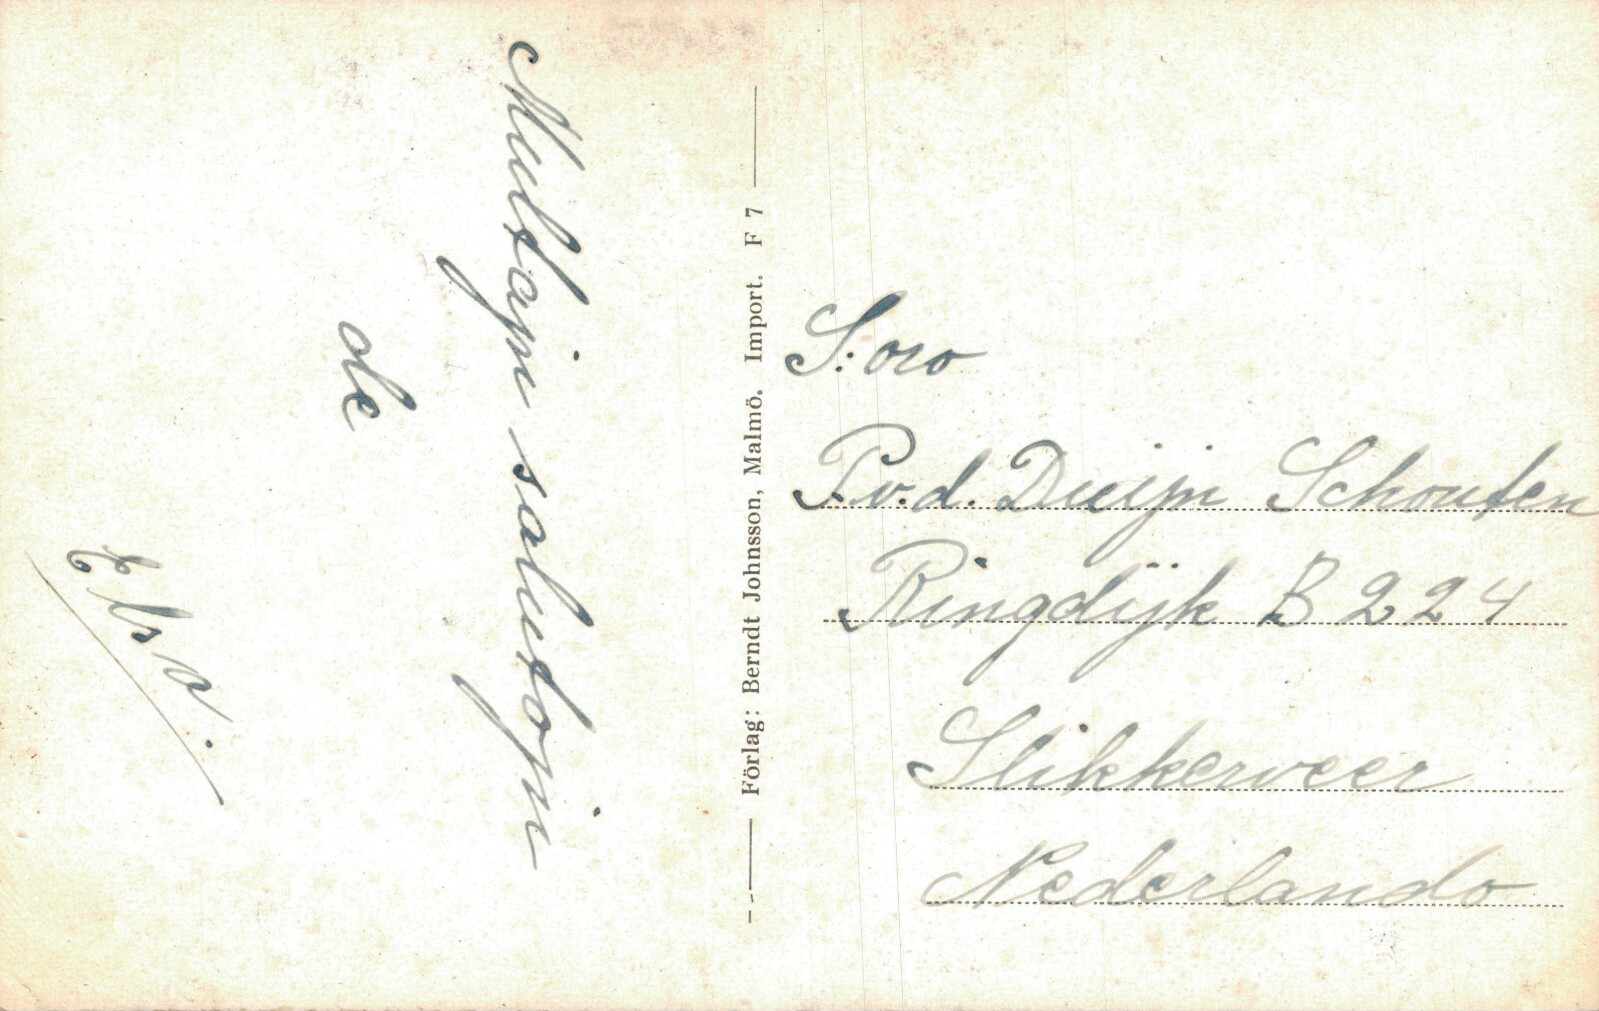 Multajn salutojn
de
Elsa.
Förlag: Berndt Johnsson, Malmö. Import. F 7
S:oro
P.v.d. Duijn Schouten
Ringdijk B 224
Slikkerveer
Nederlando